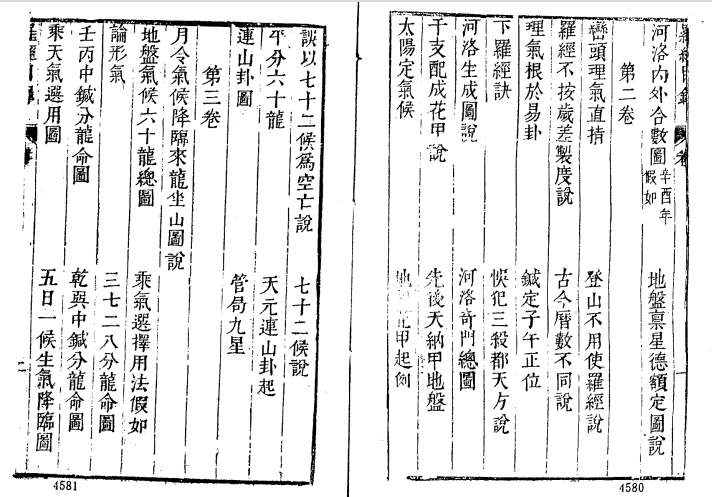 河洛內外合數圖 辛酉年假如 地盤稟星德額定圖說
第二卷
巒頭理氣直指 登山不用使羅經說
羅經不按歲差製度說 古今曆數不同說
理氣根於易卦 鍼定子午正位
下羅經訣 悞犯三殺都天方說
河洛生成圖說 河洛奇門總圖
干支配成花甲說 先後天納甲地盤
太陽定氣候 花甲起例
4580
誤以七十二候為空亡說 七十二候說
平分六十龍 天元連山卦起
連山卦圖 管局九星
第三卷
月令氣候降臨來龍坐山圖說
地盤氣候六十龍總圖 乘氣選擇用法假如
論形氣 三七二八分龍命圖
壬丙中鍼分龍命圖 乾巽中鍼分龍命圖
乘天氣選用圖 五日一候生氣降臨圖
4581